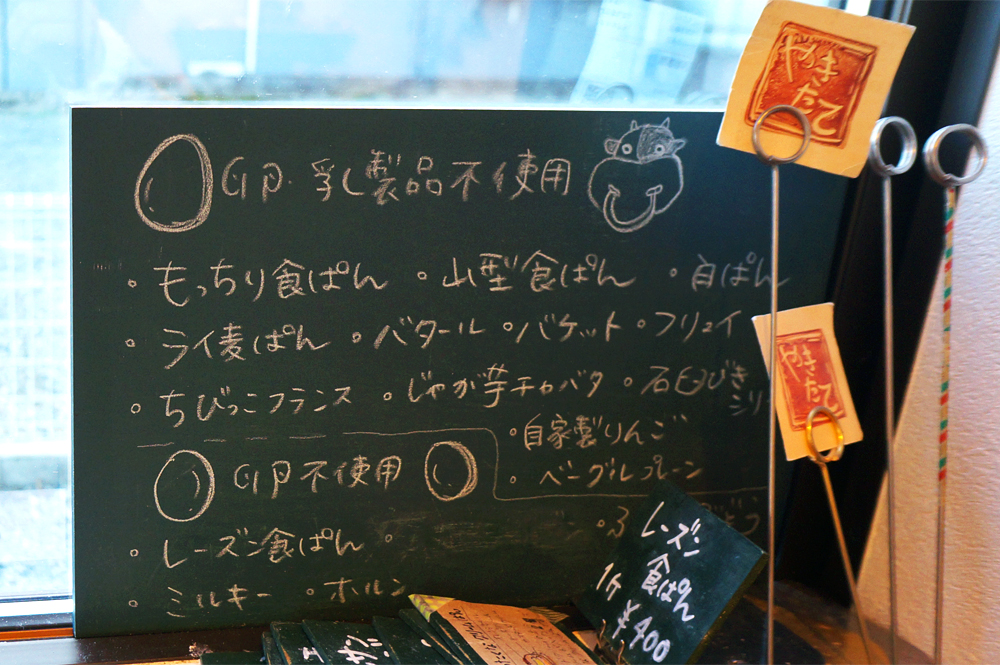 やきたて
卵 乳製品不使用
・もっちり食ぱん ・山型食ぱん ・白ぱん
・ライ麦ぱん ・バタール ・バケット ・フリュイ
・ちびっこフランス ・じゃが芋チャバタ ・石臼びき
シリー
・自家製りんご
・ベーグルプレーン
卵不使用
・レーズン食ぱん
・ミルキー ・ホルン
やきたて
レーズン
食ぱん
1ケ ¥400